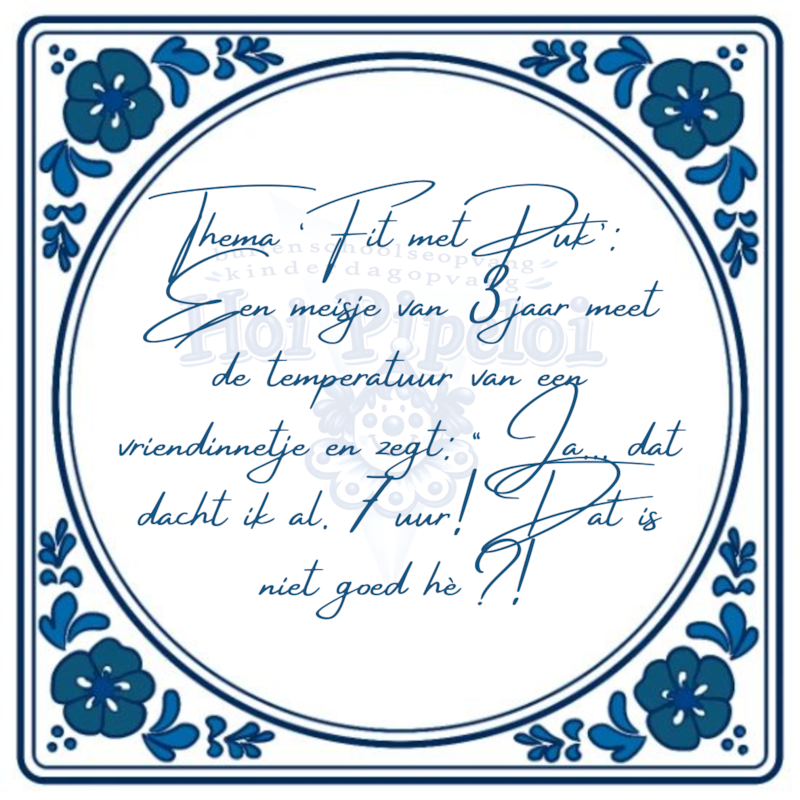 Thema ' Fit met Puk':
buitenschoolseopvang
kinderdagopvang
Hoi Pipeloi
Een meisje van 3 jaar meet
de temperatuur van een
vriendinnetje en zegt: " Ja... dat
dacht ik al. 7 uur! Dat is
niet goed hè ?!